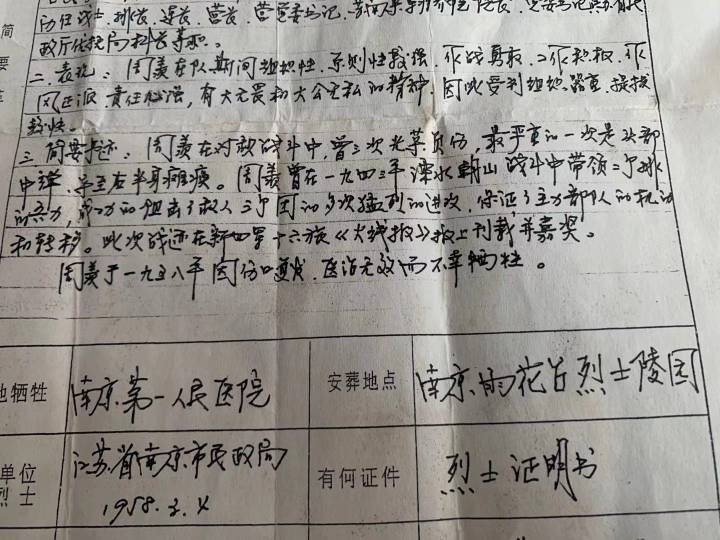 历任战士、排长、连长、营长、营党委书记、
政厅优抚局科长等职。
二、表现：周义在队期间组织性、原则性较强，作战勇敢，工作积极，作
风正派，责任心强，有大无畏和大公无私的精神，因此受到组织器重，提拔
较快。
三、简要事迹：周义在对敌战斗中，曾三次光荣负伤，最严重的一次是头部
中弹，导至右半身瘫痪。周义曾在一九四三年溧水 山战斗中带领二个排
的兵力，成功的阻击了敌人三个团的多次猛烈的进攻，保证了主力部队的机动
和转移。此次战还在新四军十六旅《火线报》报上刊载并嘉奖。
周义于一九五八年因伤口复发，医治无效而不幸牺牲。
简
要
地牺牲 南京第一人民医院 安葬地点 南京雨花台烈士陵园
单位
烈士 江苏省南京市民政局 有何证件 烈士证明书
1958.3.4